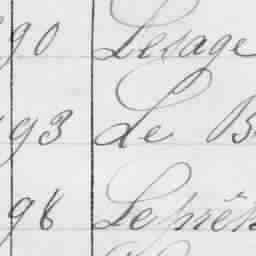 90 Lesage
93 Le B
98 Leprêt